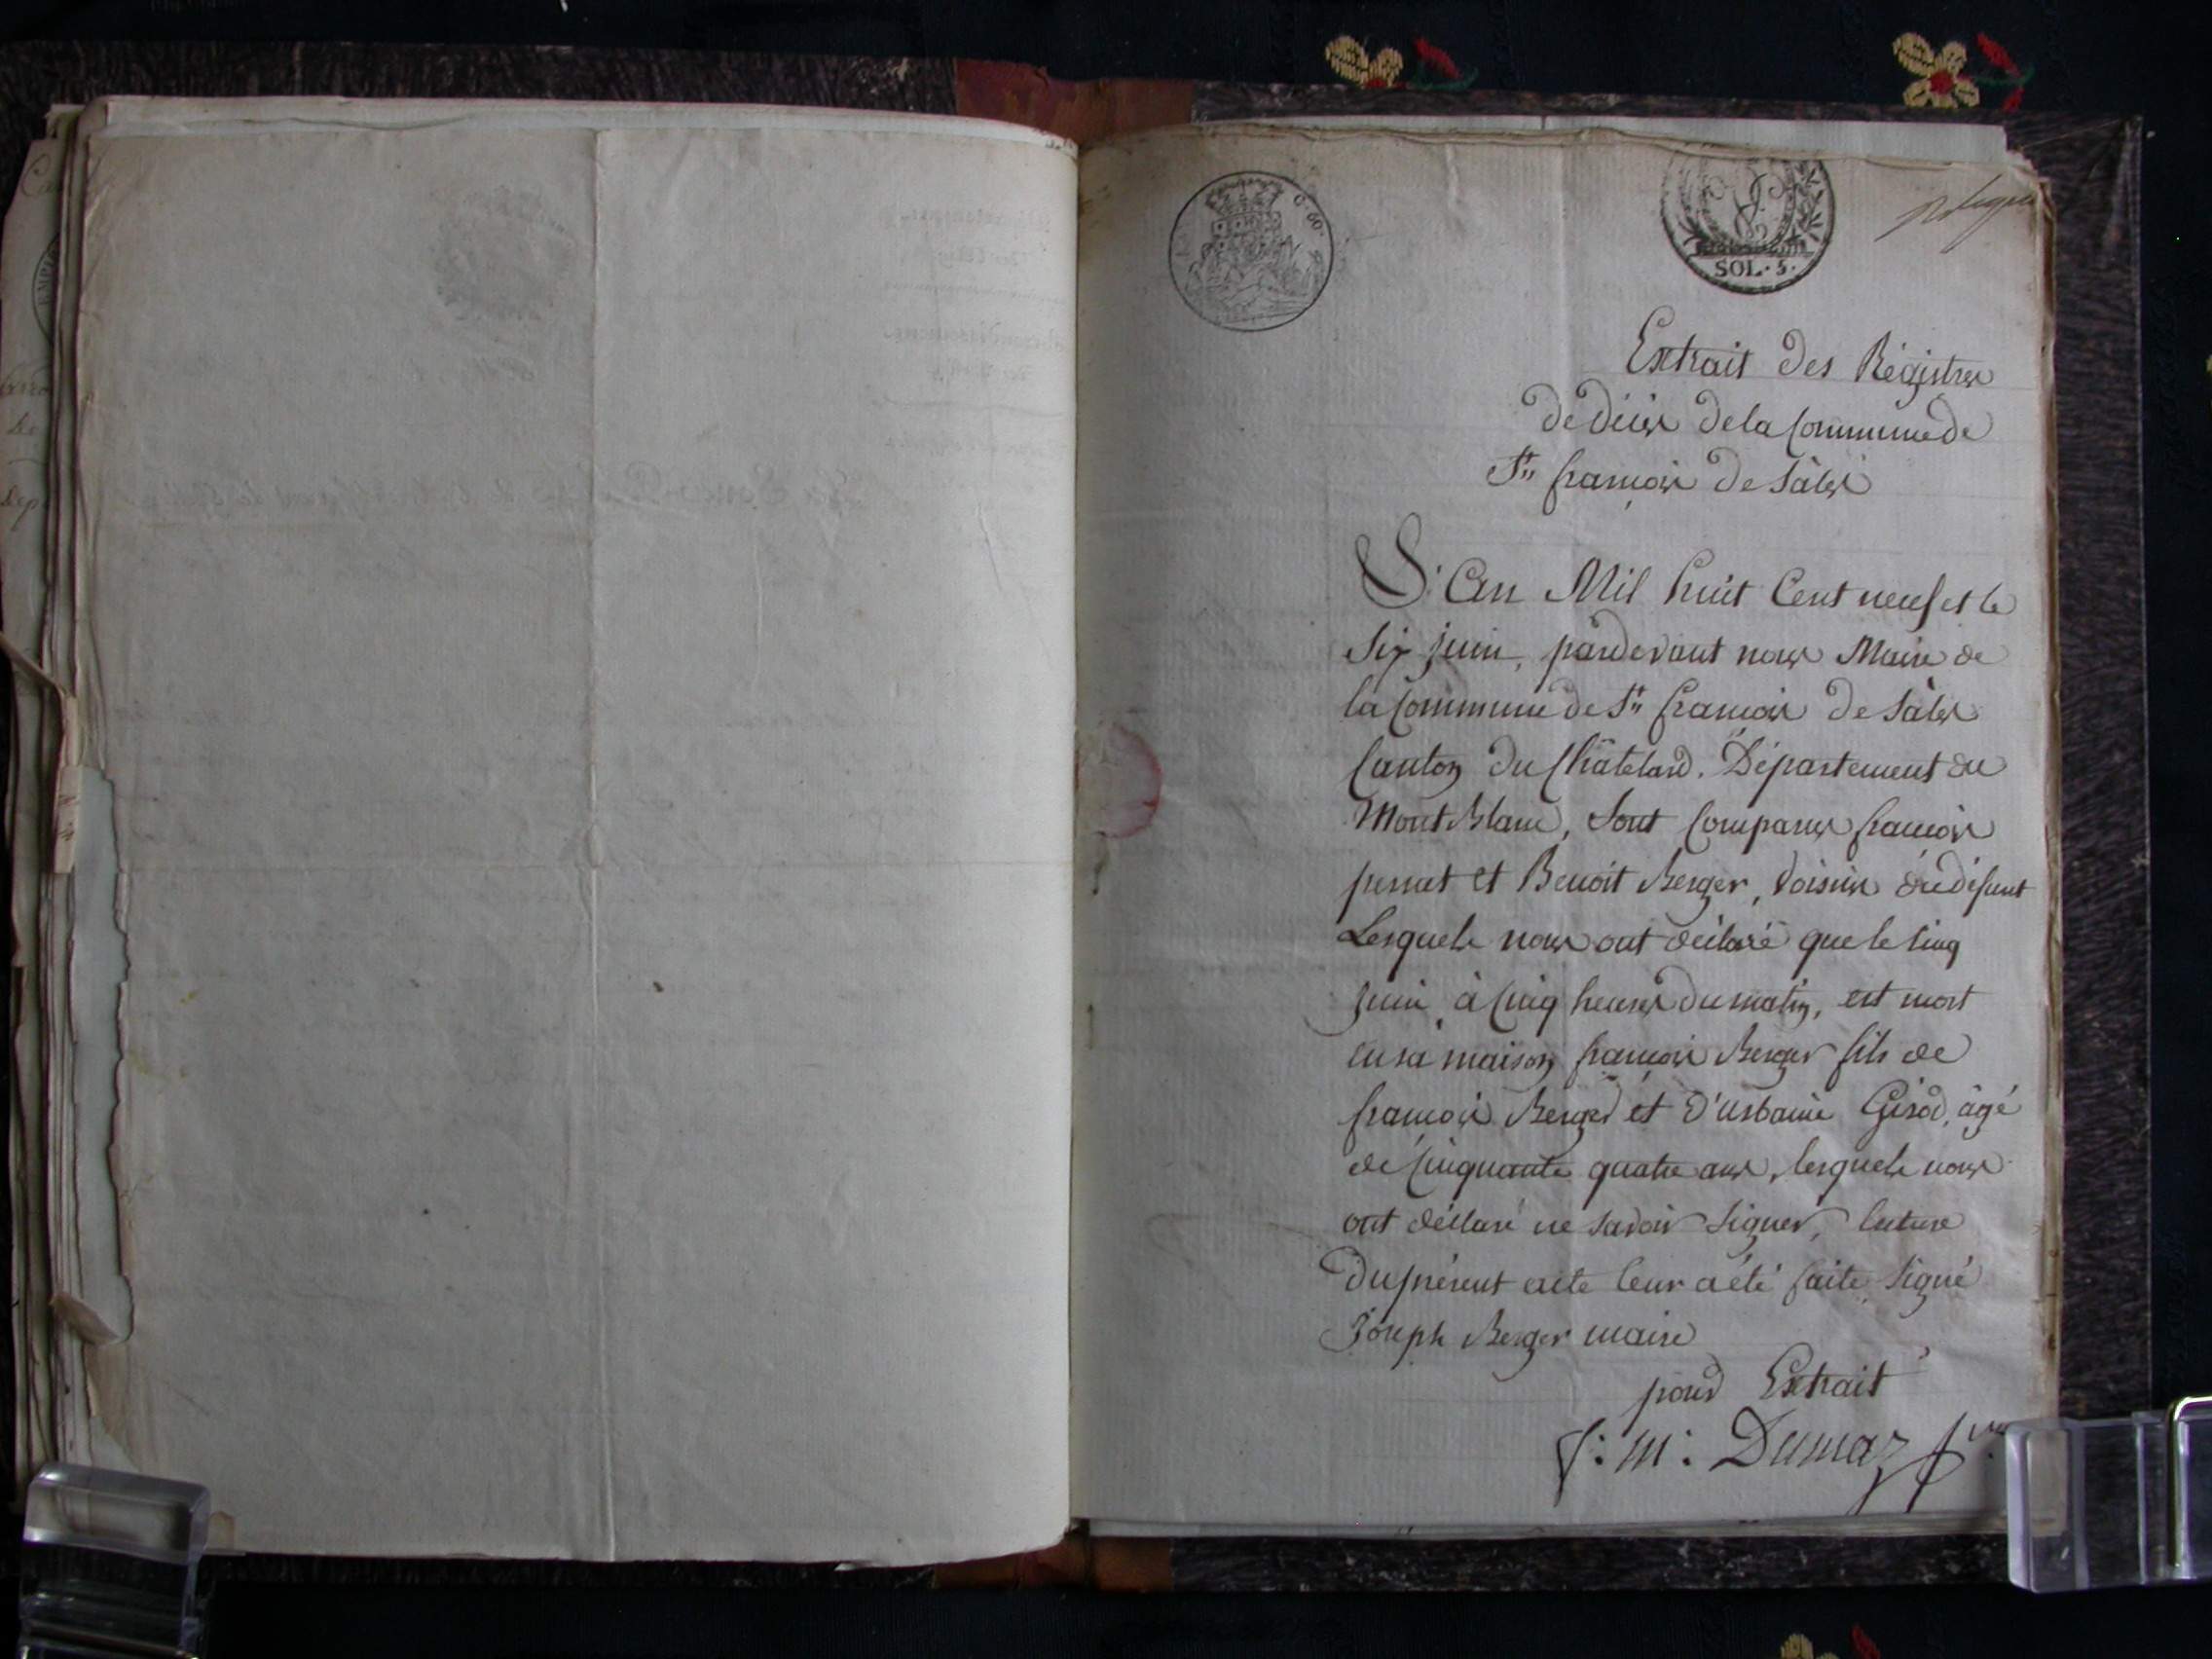 C. 60.
SOL. 5.
Extrait des Régistres
de décès de la Commune de
St. françois de Sâles
L'an Mil huit Cent neuf et le
Six juin, pardevant nous Maire de
la Commune de St. françois de Sâles
Canton du Châtelard. Département du
Mont Blanc, Sont Comparus françois
pernet et Benoit Berger, Voisins du défunt
Lesquels nous ont déclaré que le Cinq
juin à Cinq heures du matin, est mort
en sa maison françois Berger fils de
françois Berger et D'urbaine Girod, âgé
de Cinquante quatre ans, lesquels nous
ont déclaré ne savoir Signer, lecture
du présent acte leur a été faite Signé
Joseph Berger maire
pour Extrait
f: m: Dumaz